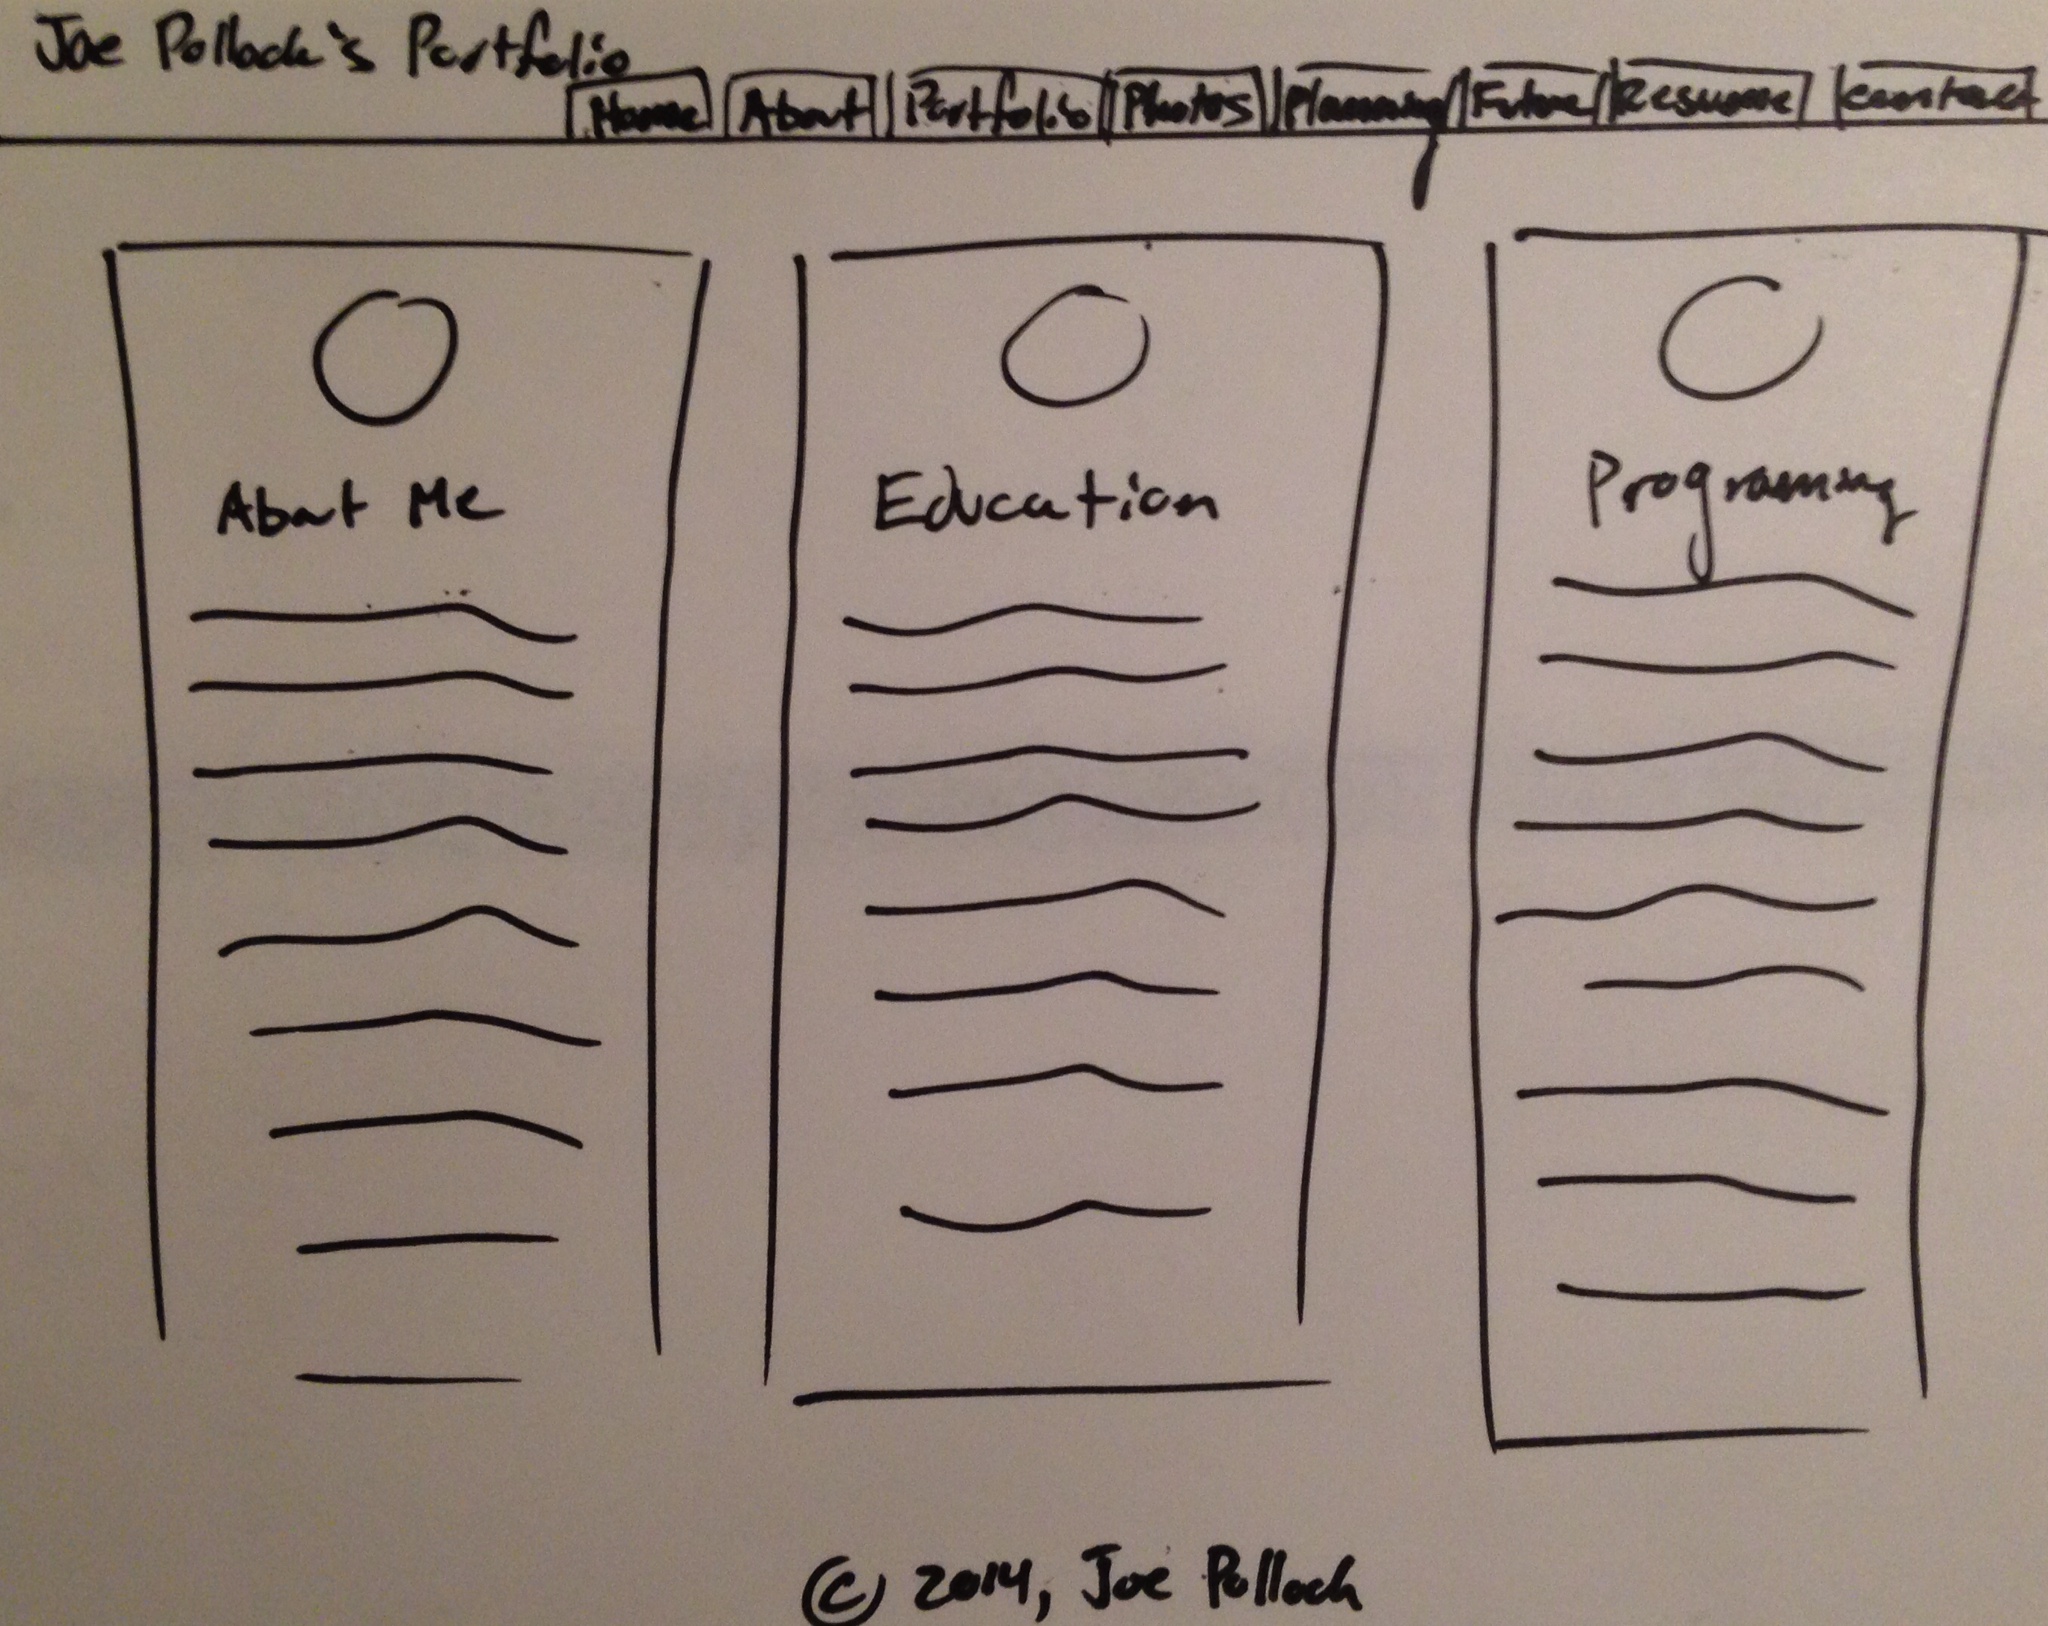 Joe Pollock's Portfolio
Home About Portfolio Photos Planning Future Resume Contact
About Me Education Programing
© 2014, Joe Pollock